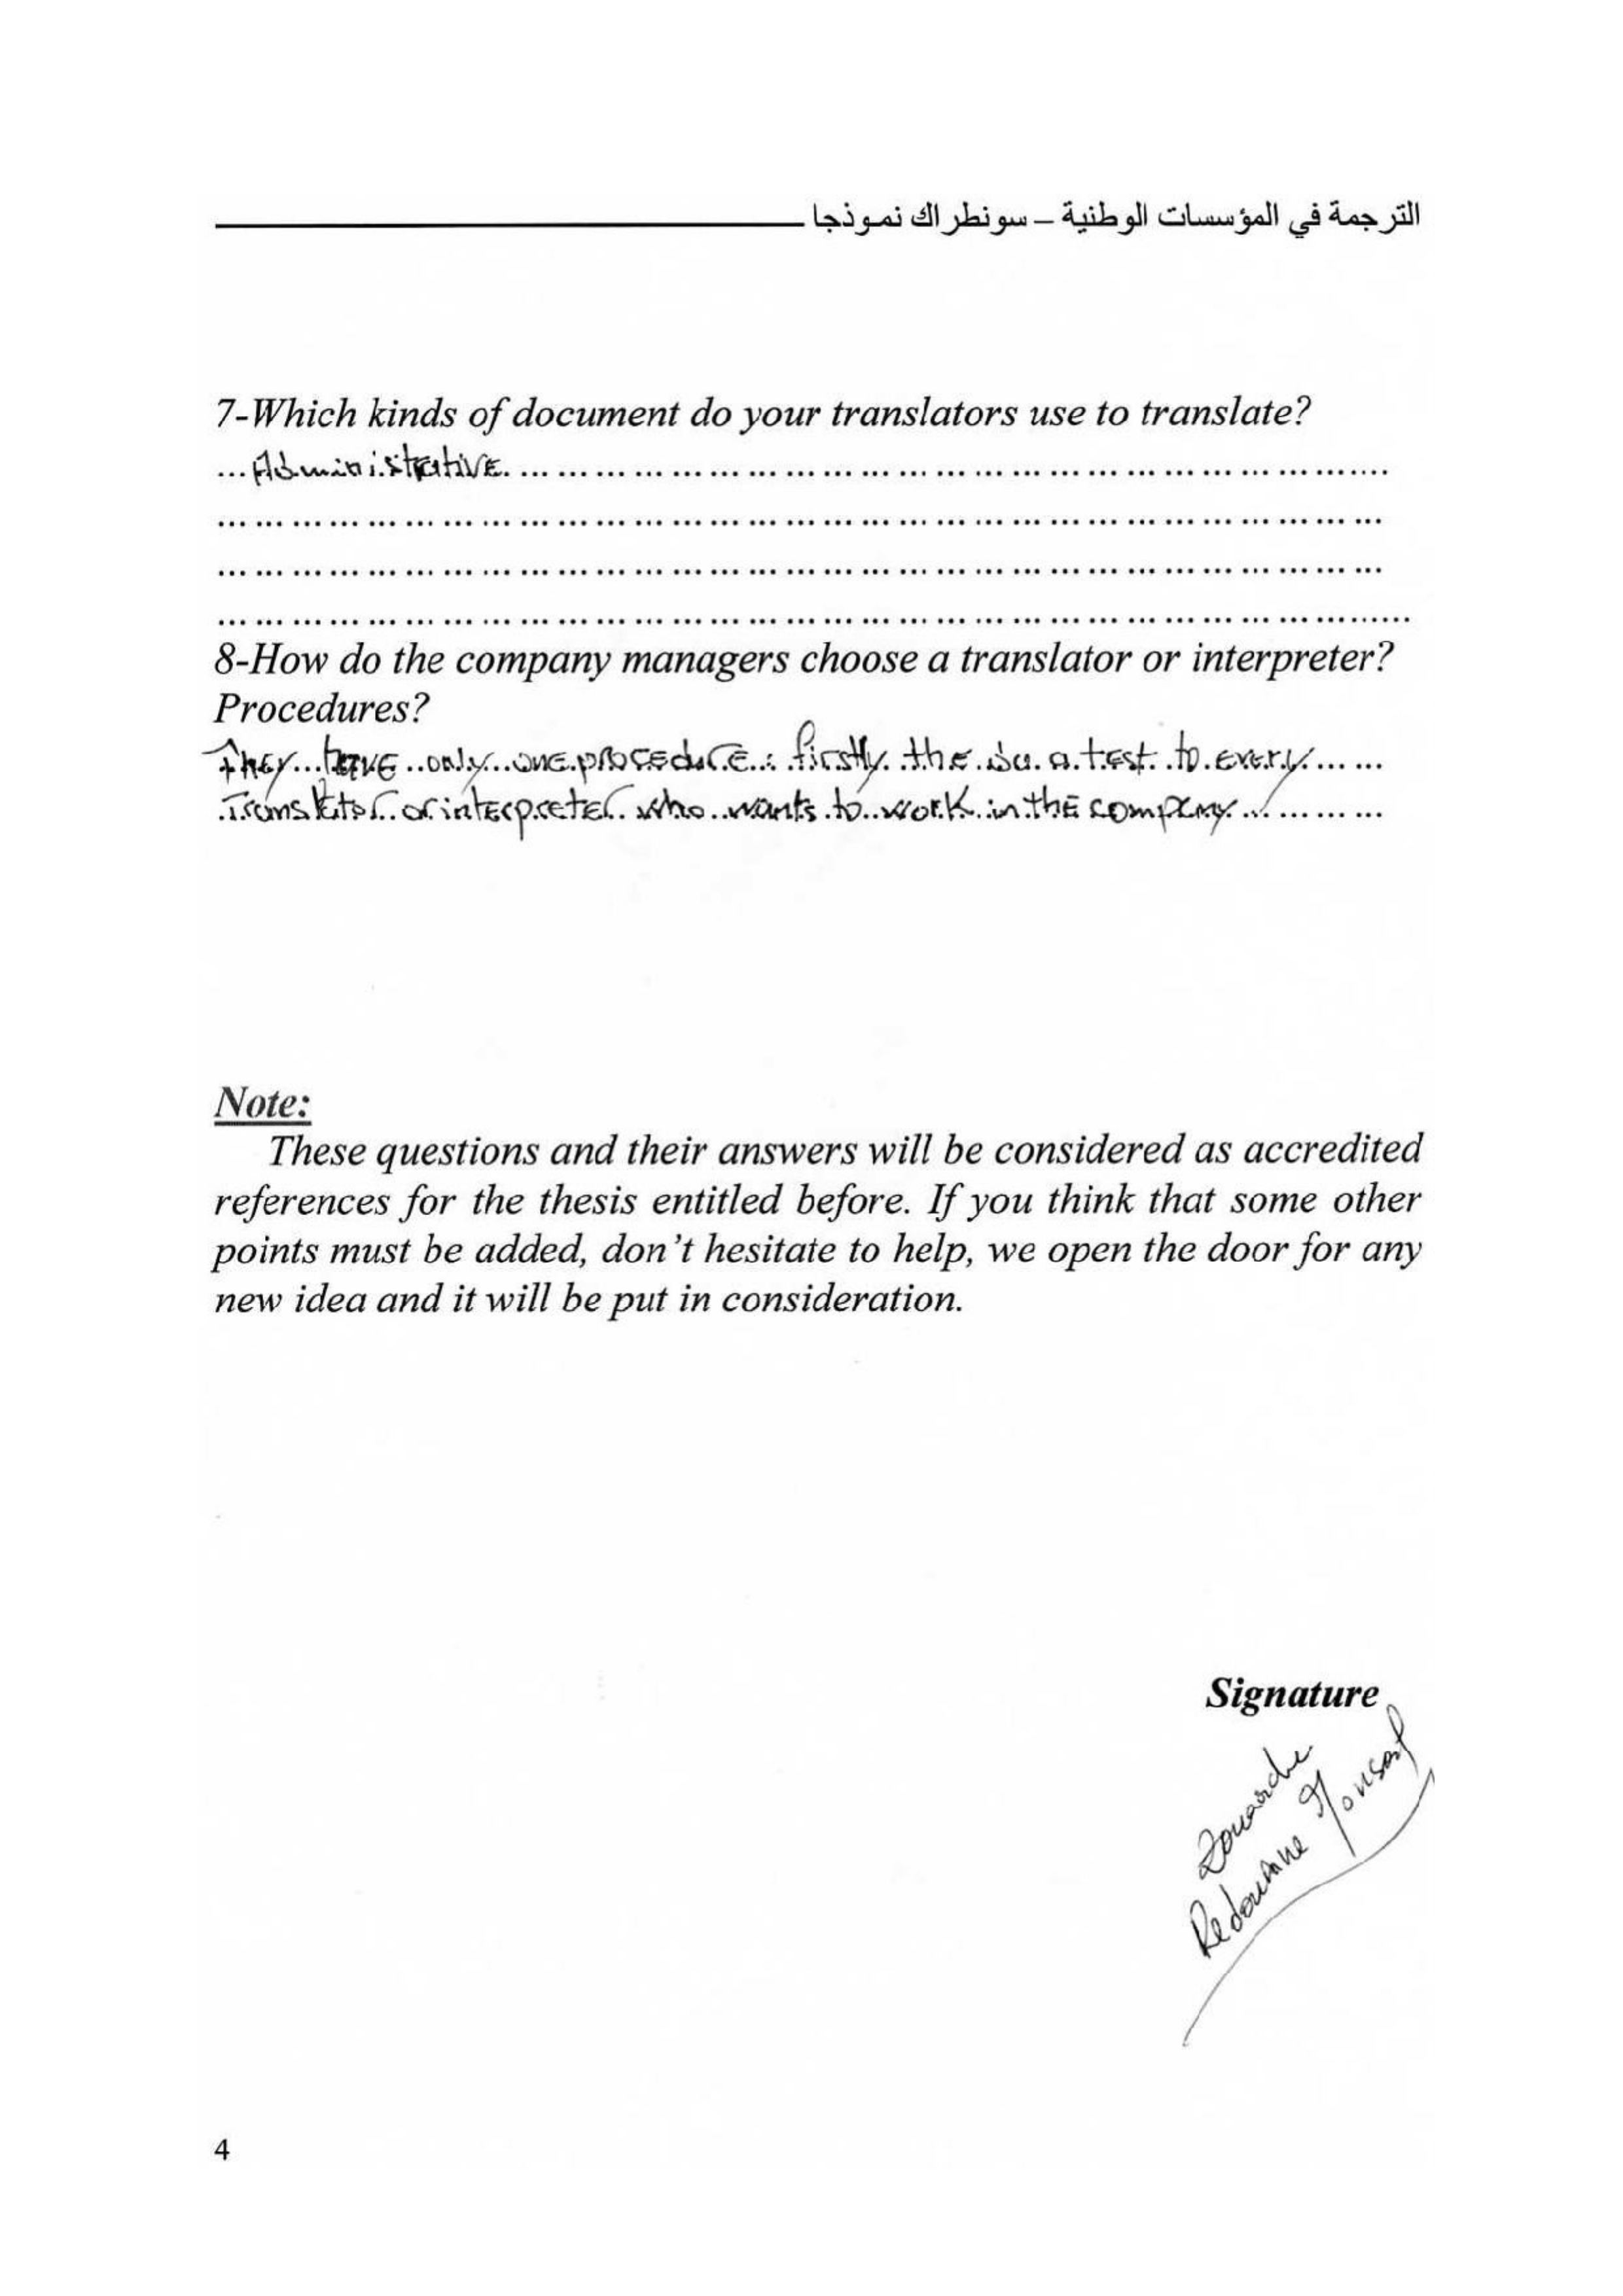 الترجمة في المؤسسات الوطنية – سونطراك نموذجا
7-Which kinds of document do your translators use to translate?
...Administrative.................................................................................
...........................................................................................
...........................................................................................
...........................................................................................
8-How do the company managers choose a translator or interpreter?
Procedures?
They...have..only...one.procedure.: firstly. the. a.test..to.every......
Translator..or.interpreter. who..wants.to..work.in.the company..........
Note:
These questions and their answers will be considered as accredited
references for the thesis entitled before. If you think that some other
points must be added, don't hesitate to help, we open the door for any
new idea and it will be put in consideration.
Signature
Redouane
4